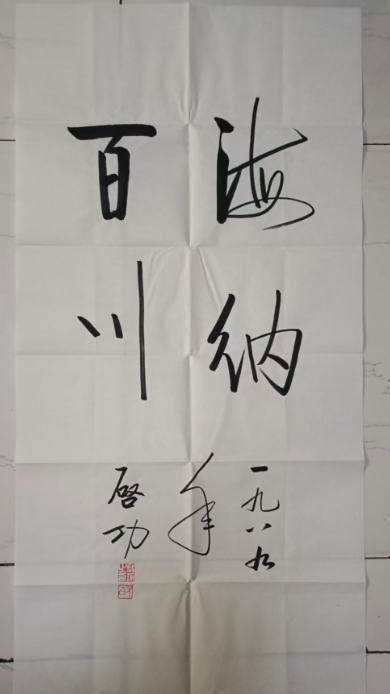 海纳
百川
一九八九
年
啓功